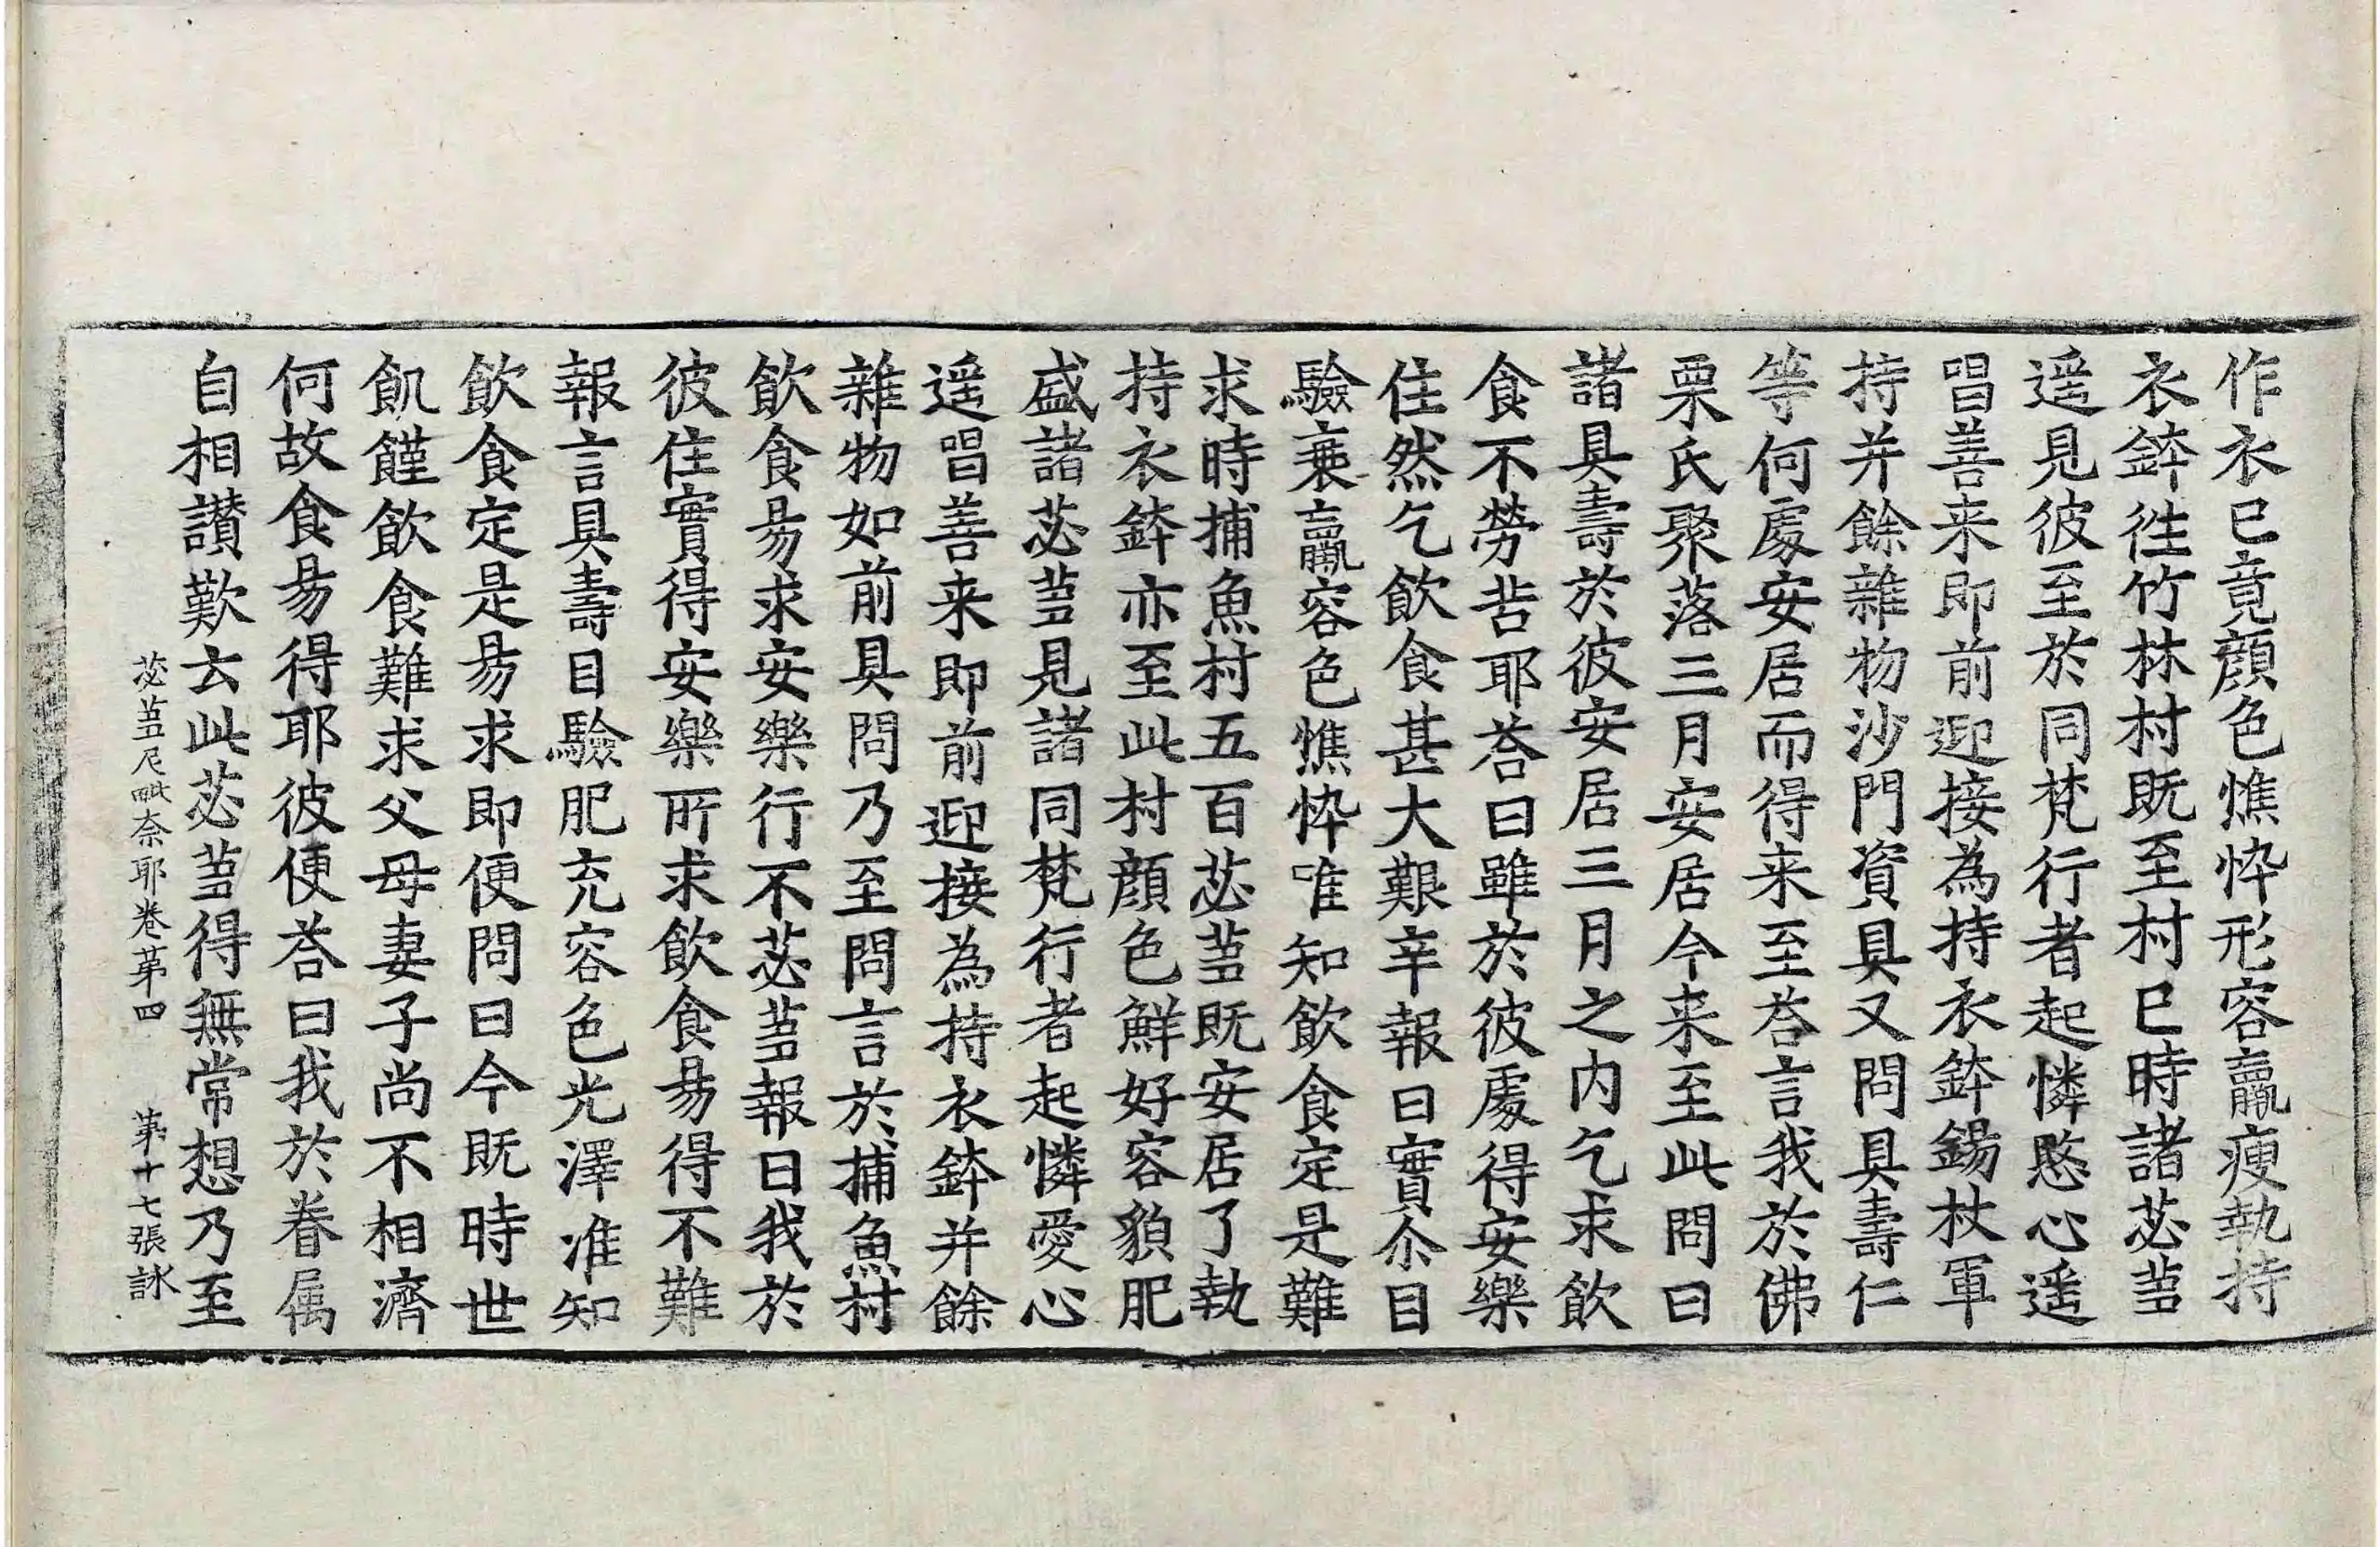 作衣已竟顔色憔悴形容羸瘦執持
衣鉢徃竹林村既至村已時諸苾芻
遥見彼至於同梵行者起憐愍心遥
唱善来即前迎接為持衣鉢錫杖軍
持并餘雜物沙門資具又問具壽仁
等何處安居而得来至荅言我於佛
栗氏聚落三月安居今来至此問曰
諸具壽於彼安居三月之内乞求飲
食不勞苦耶荅曰雖於彼處得安樂
住然乞飲食甚大艱辛報曰實尒目
驗衰羸容色憔悴唯知飲食定是難
求時捕魚村五百苾芻既安居了執
持衣鉢亦至此村顔色鮮好容貌肥
盛諸苾芻見諸同梵行者起憐愛心
遥唱善来即前迎接為持衣鉢并餘
雜物如前具問乃至問言於捕魚村
飲食易求安樂行不苾芻報曰我於
彼住實得安樂所求飲食易得不難
報言具壽目驗肥充容色光澤准知
飲食定是易求即便問曰今既時世
飢饉飲食難求父母妻子尚不相濟
何故食易得耶彼便荅曰我於眷属
自相讃歎云此苾芻得無常想乃至
苾芻尼毗奈耶卷苐四　苐十七張　詠